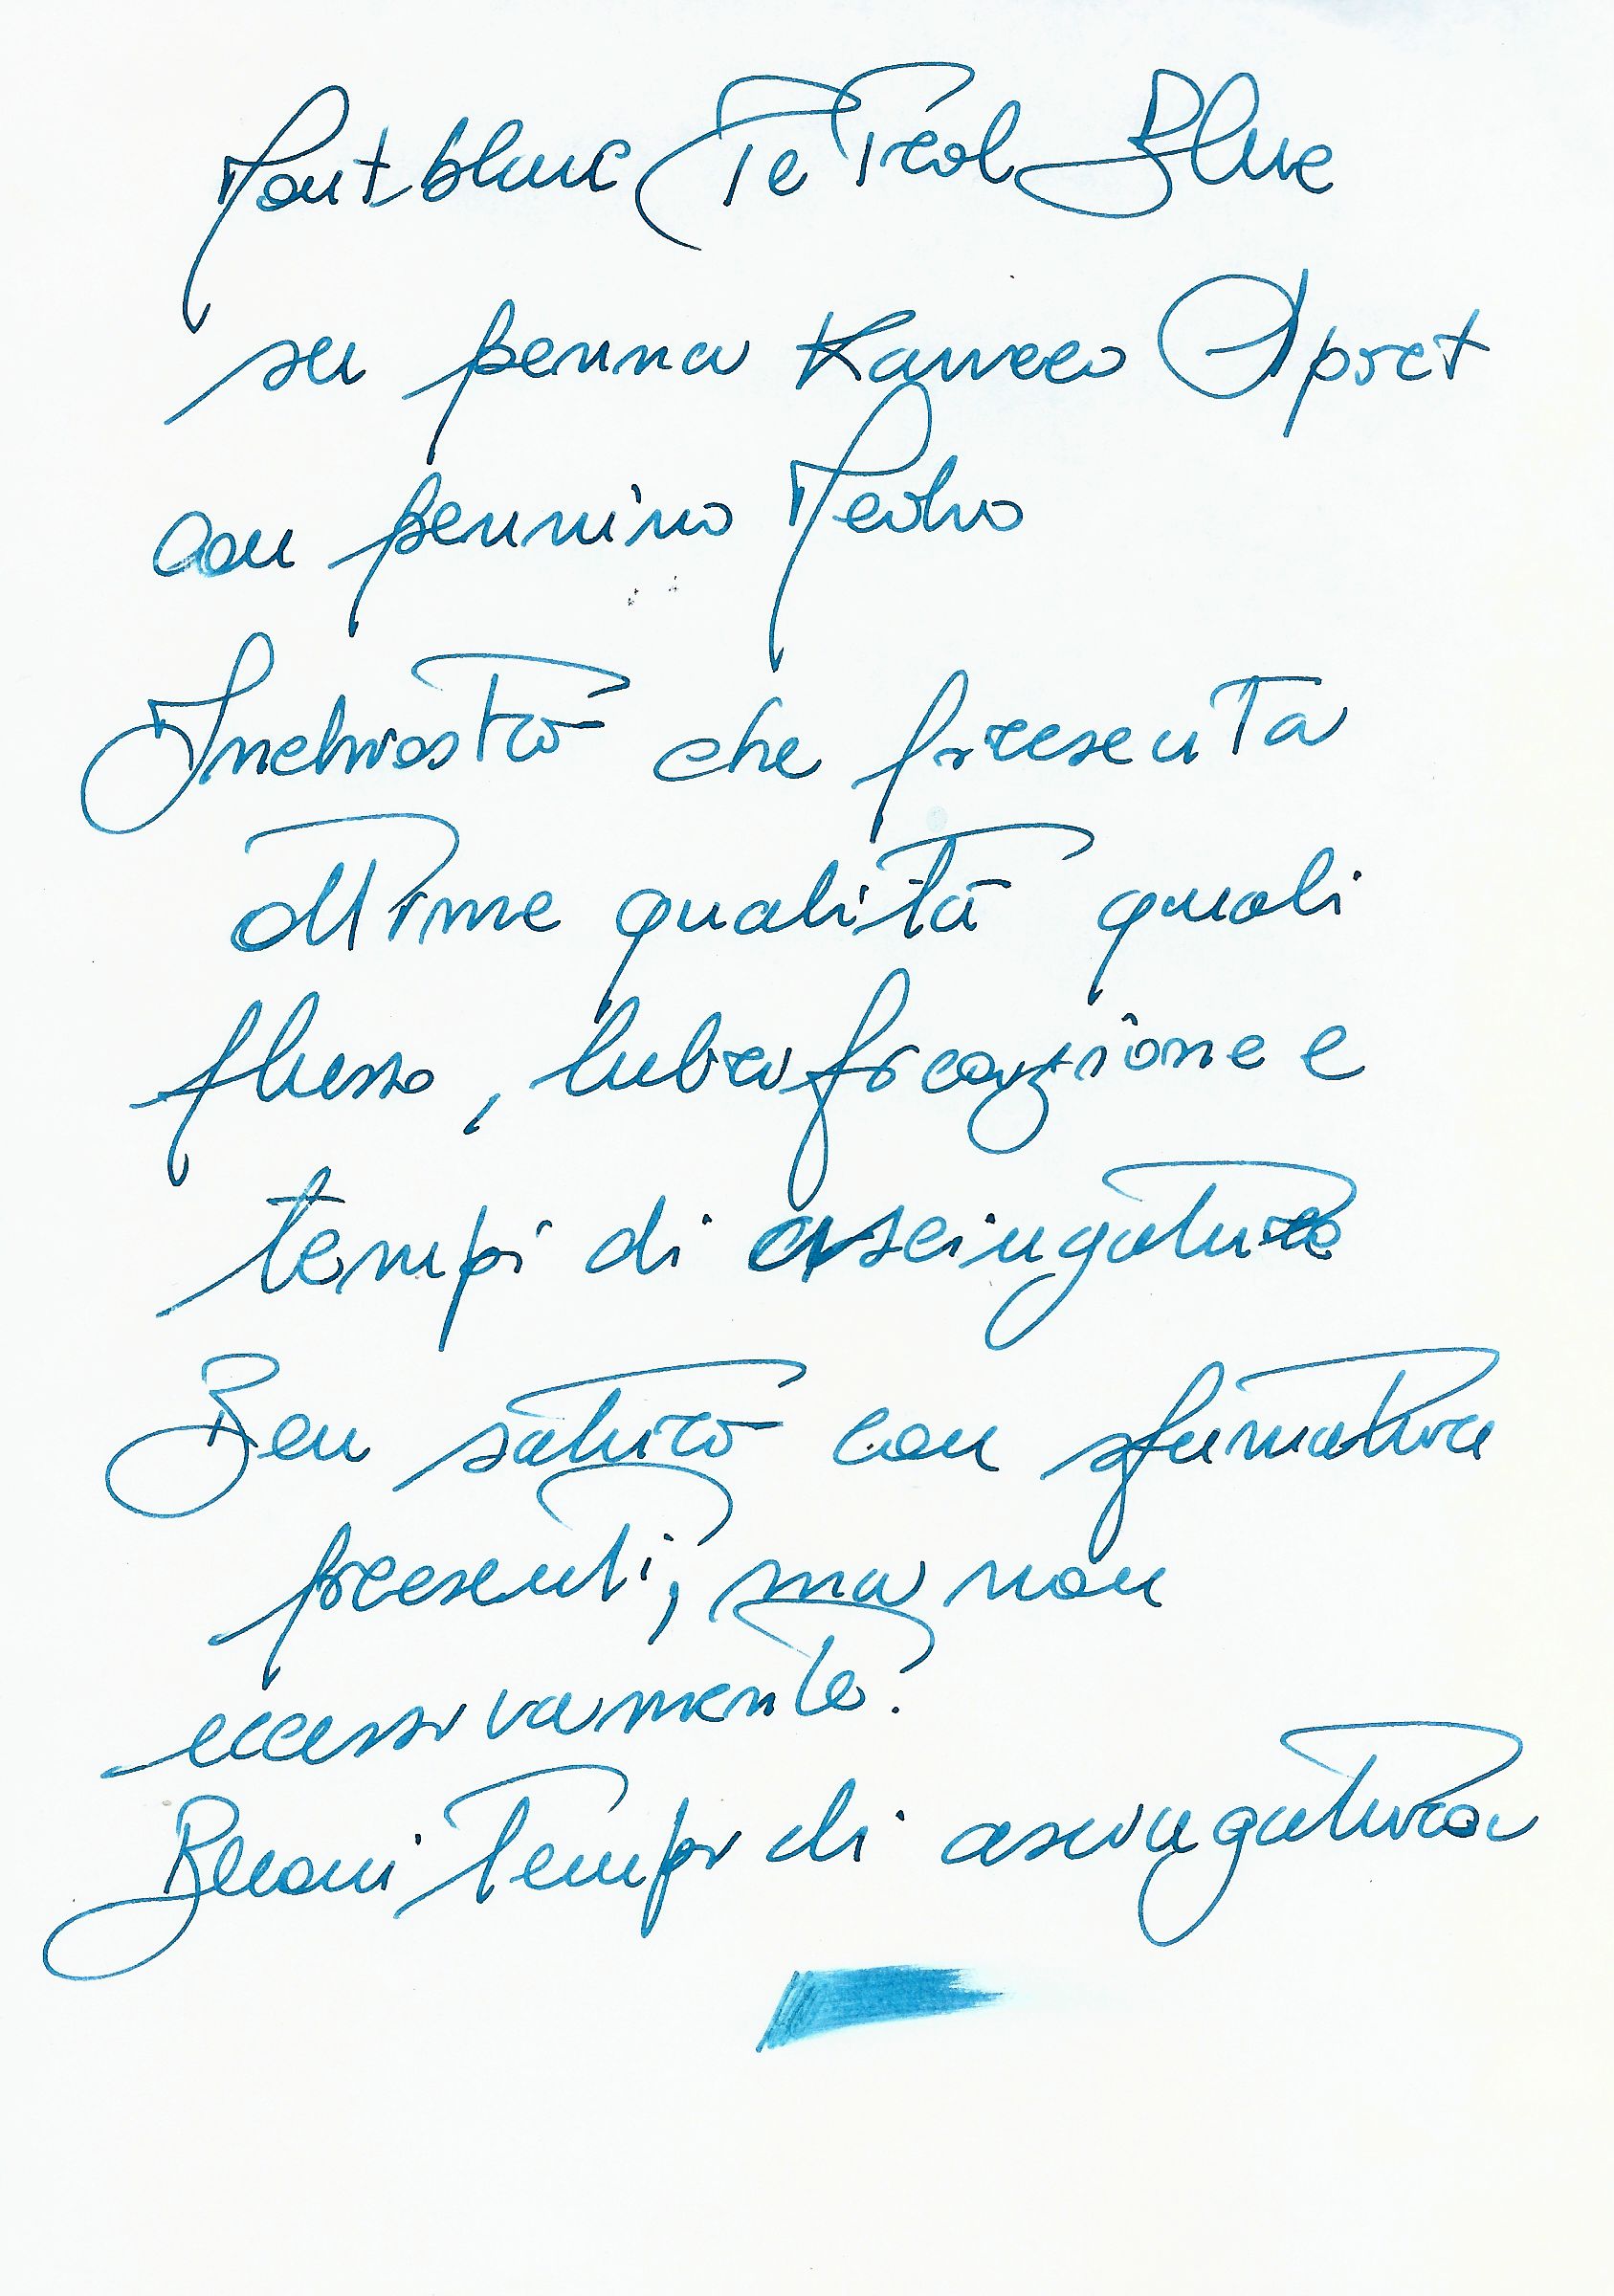 Montblanc Petrol Blue
su penna Kaweco Sport
con pennino Medio
Inchiostro che presenta
ottime qualità quali
flusso, lubrificazione e
tempi di asciugatura
Ben saturo con sfumature
presenti, ma non
eccessivamente.
Buoni tempi di asciugatura